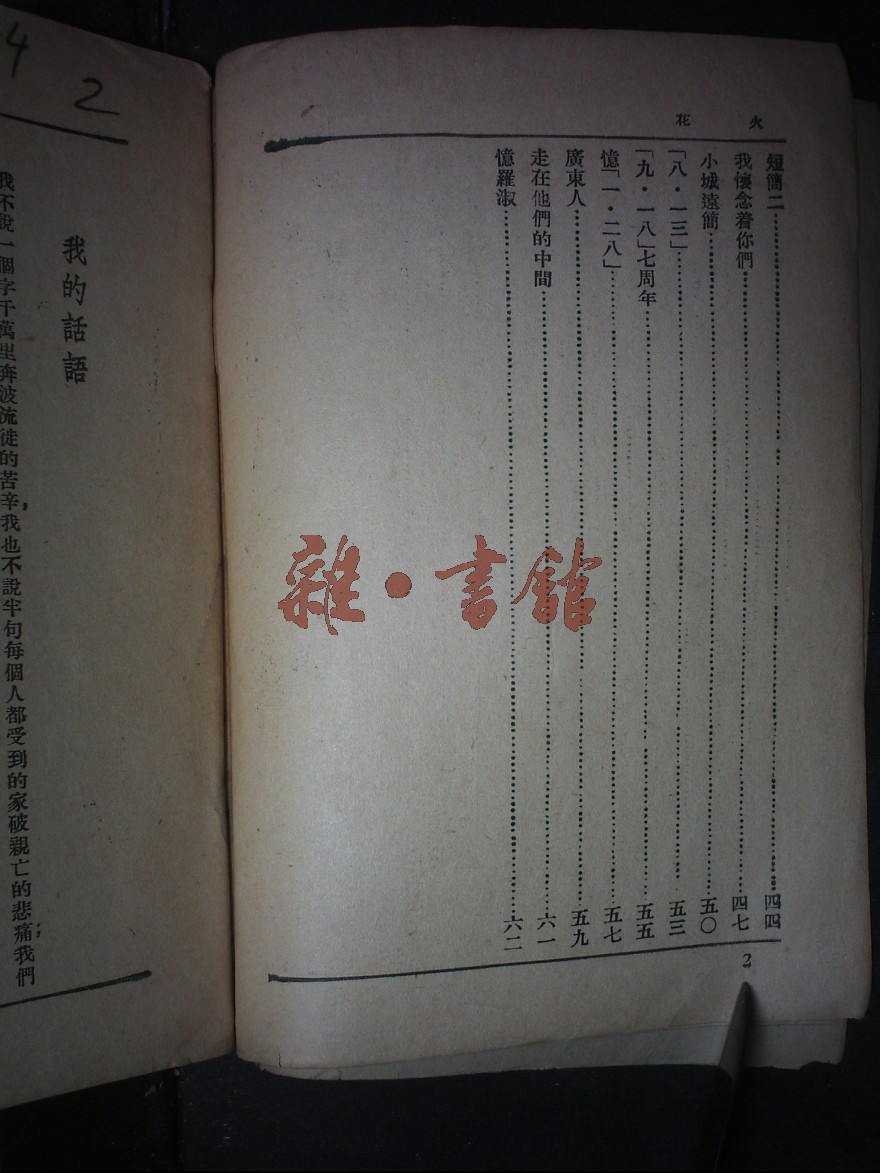 火花
短簡二……四四
我懷念着你們……四七
小城遠簡……五〇
「八·一三」……五三
「九·一八」七周年……五五
憶「一·二八」……五七
廣東人……五九
走在他們的中間……六一
憶羅淑……六二
2
雜·書館
4 2
我的話語
我不說一個字千萬里奔波流徙的苦辛,我也不說半句每個人都受到的家破親亡的悲痛;我們